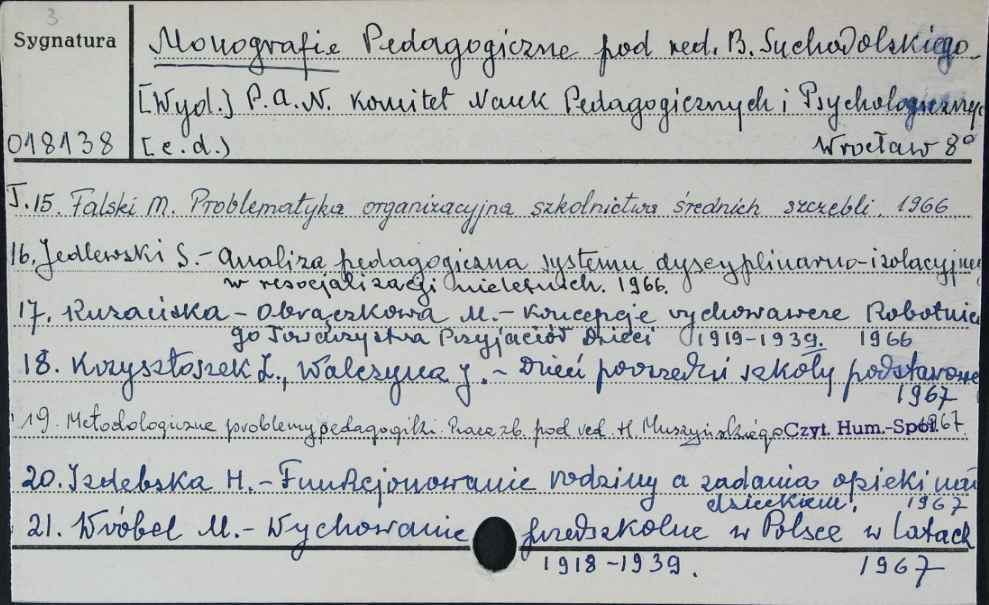 3
Sygnatura
Monografie Pedagogiczne pod red. B. Suchodolskiego
[Wyd.] P.A.N. Komitet Nauk Pedagogicznych i Psychologicznyc
018138 [e.d.) Wrocław 8°
T.15. Falski M. Problematyka organizacyjna szkolnictwa średnich szczebli. 1966
16. Jedlewski S. - Analiza pedagogiczna systemu dyscyplinarno-izolacyjneg
w resocjalizacji nieletnich. 1966.
17. Kuzańska - Obrączkowa M. - Koncepcje wychowawcze Robotnicze
go Towarzystwa Przyjaciół Dzieci 1919-1939. 1966
18. Krzysztoszek Z., Walczyna J. - Dzieci poprzedni szkoły podstawowe
1967
19. Metodologiczne problemy pedagogiki. Praca zb. pod red. H. Muszyńskiego Czyt. Hum.-Społ. 1967.
20. Izdebska H. - Funkcjonowanie rodziny a zadania opieki nad
dzieckiem. 1967
21. Wróbel M. - Wychowanie przedszkolne w Polsce w latach
1918-1939. 1967